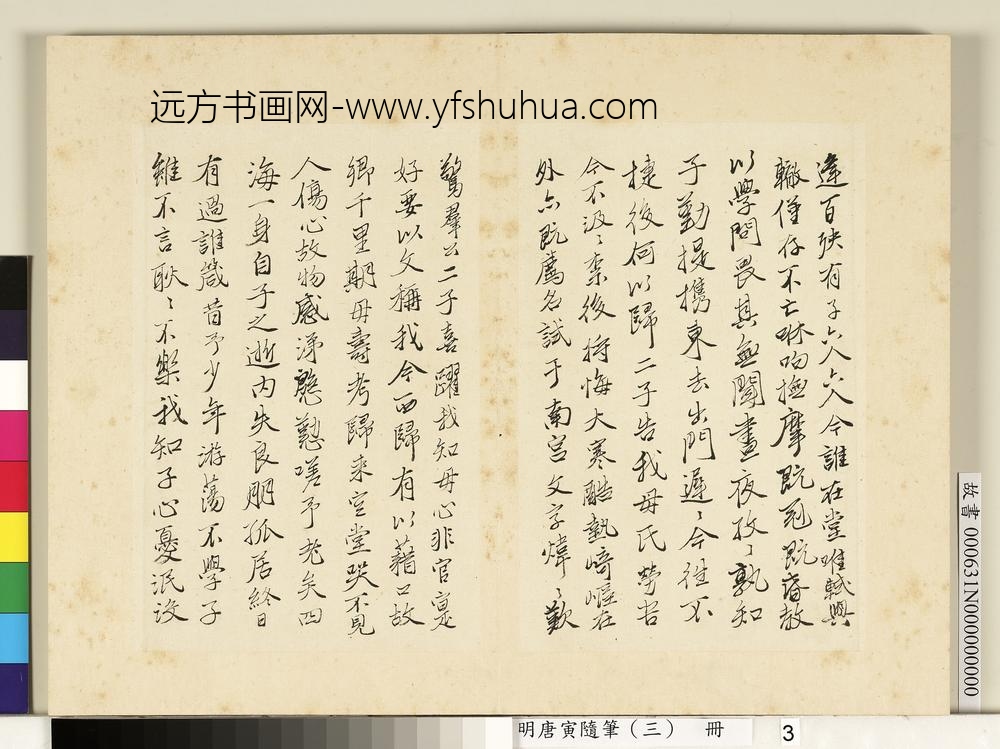 远方书画网-www.yfshuhua.com
逢百殃有子六人今誰在堂唯軾與
轍僅存不亡咻呴撫摩既冠既昏教
以學問畏其無聞晝夜孜孜孰知
子勤提攜東去出門遲遲今往不
捷後何以歸二子告我母氏勞苦
今不汲汲柰後將悔大寒酷熱崎嶇在
外亦既薦名試于南宮文字煒煒歎
驚羣公二子喜躍我知母心非官寔
好要以文稱我今西歸有以藉口故
鄉千里期母壽考歸來空堂哭不見
人傷心故物感涕慇懃嗟予老矣四
海一身自子之逝内失良朋孤居終日
有過誰箴昔予少年游蕩不學子
雖不言耿耿不樂我知子心憂泯沒
故書 000631N000000000
明唐寅隨筆（三） 冊
3